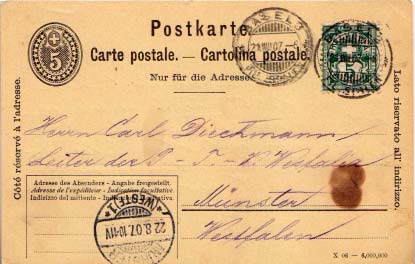 Postkarte.
Carte postale. — Cartolina postale.
Nur für die Adresse.
5
BASEL 9
Côté réservé à l'adresse.
Lato riservato all' indirizzo.
Herrn Carl Dieckmann
Leiter der P - T - V. Westfalia
Münster
Westfalen
Adresse des Absenders - Angabe freigestellt.
Adresse de l'expéditeur - Indication facultative
Indirizzo del mittente - Indicazione facoltativa
MÜNSTER
(WESTF.) 1
22.8.07.10-11V
X 06 — 6,000,000